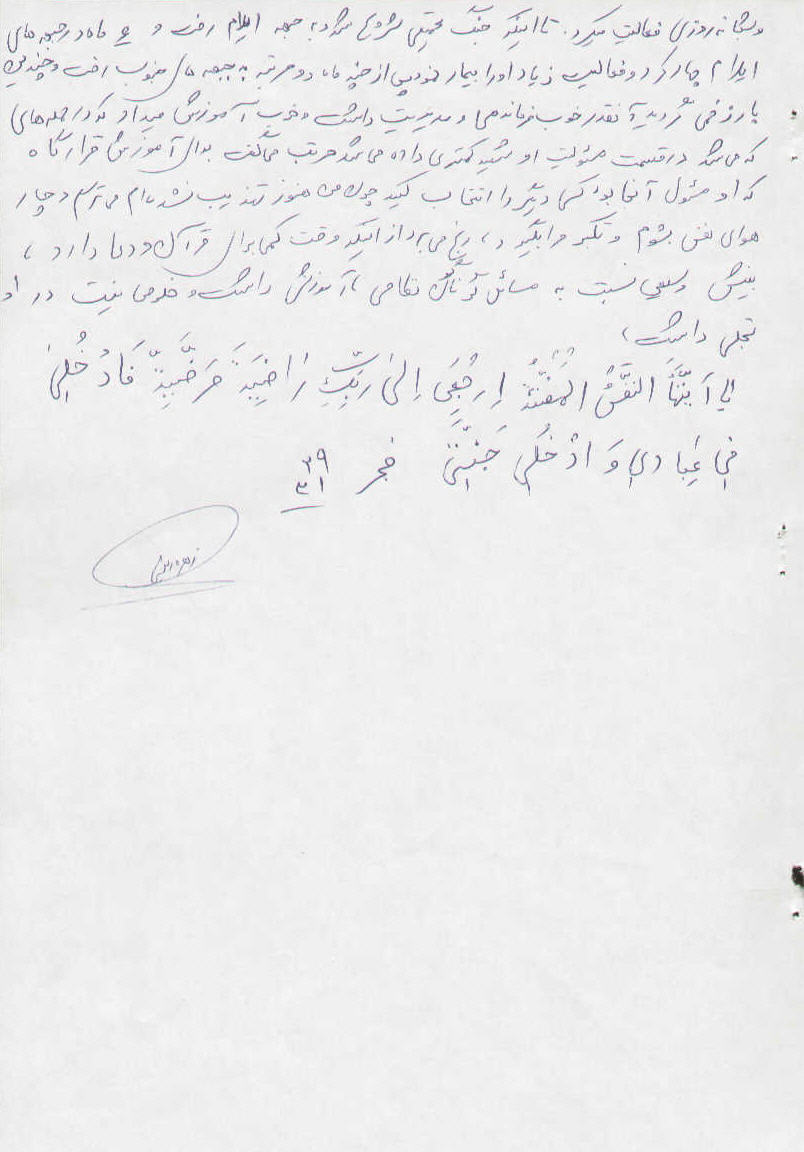 و شبانه روزی فعالیت میکرد. تا اینکه جنگ تحمیلی شروع شد به جبهه ایلام رفت و ۶ ماه در جبهه های
ایلام چهار کرد و فعالیت زیاد او را بیمار نمود پس از چند ماه دو مرتبه به جبهه های جنوب رفت و چندین
بار زخمی گردید آنقدر خوب فرماندهی و مدیریت داشت و خوب آموزش میداد که در حمله های
که می شد در قسمت مسئولیت او شهید کمتری داده می شد مرتب میگفت برای آموزش قرارگاه
که او مسئول آنجا بود کس دیگر را انتخاب کنید چون من هنوز تهذیب نشده ام می ترسم دچار
هوای نفس بشوم و تکبر مرا بگیرد، رنج می برد از اینکه وقت کمی برای قرآن و دعا دارد،
بینش وسیعی نسبت به مسائل گوناگون نظامی آموزش داشت و خلوص نیت در او
تجلی داشت،
یا اَیَّتُهَا النَّفْسُ الْمُطْمَئِنَّةُ اِرْجِعی اِلیٰ رَبِّکِ رٰاضِیَةً مَرْضِیَّةً فَادْخُلِی
فِی عِبٰادِی وَ ادْخُلی جَنَّتِی فجر ۲۹
۳۱